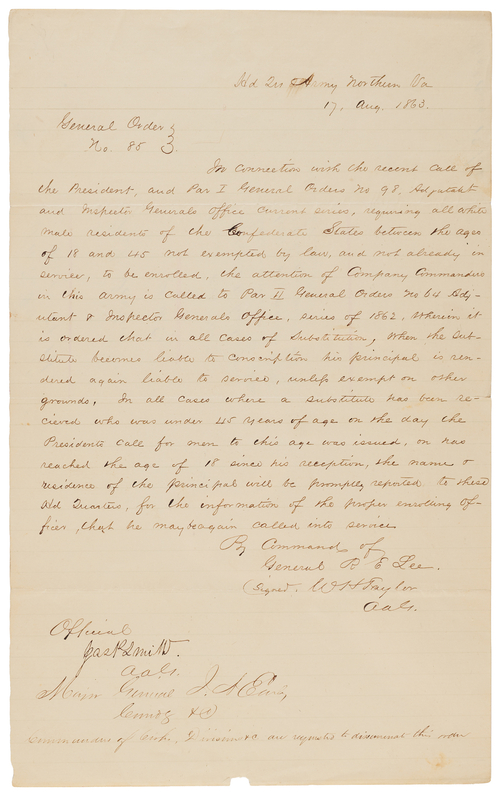 Hd Qrs Army Northern Va
17, Aug 1863.
General Order
No. 85
In Connection with the recent Call of
the President, and Par I General Orders No 98, Adjutant
and Inspector Generals Office current series, requiring all white
male residents of the Confederate States between the ages
of 18 and 45 not exempted by law, and not already in
service, to be enrolled, the attention of Company Commanders
in this army is called to Par II General Orders No 64 Adj-
utant & Inspector Generals Office, series of 1862, Wherein it
is ordered that in all cases of Substitution, When the sub-
stitute becomes liable to conscription his principal is ren-
dered again liable to service, unless exempt on other
grounds. In all cases where a substitute has been re-
cieved who was under 45 years of age on the day the
Presidents call for men to this age was issued, or has
reached the age of 18 since his reception, the name &
residence of the principal will be promptly reported to these
Hd Quarters, for the information of the proper enrolling of-
ficer, that he may be again called into service
By Command of
General R E Lee.
(Signed, W H Taylor
AAG.
Official
AAG.
Major General J. A
Comdg &c
Commanders of Divisions &c are requested to disseminate this order